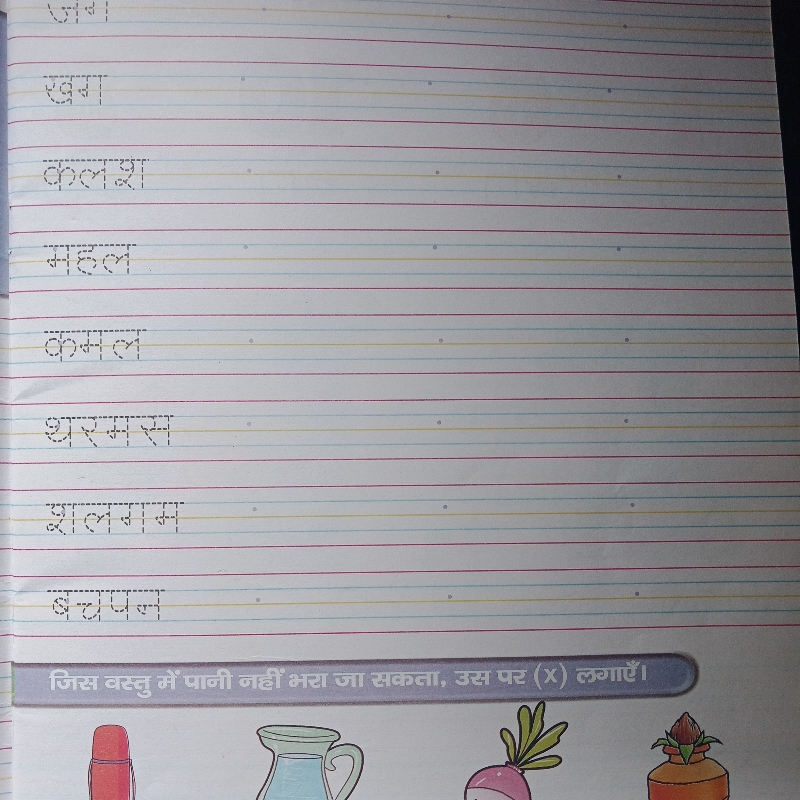 खग
कलश
महल
कमल
थरमस
शलगम
बचपन
जिस वस्तु में पानी नहीं भरा जा सकता, उस पर (x) लगाएँ।